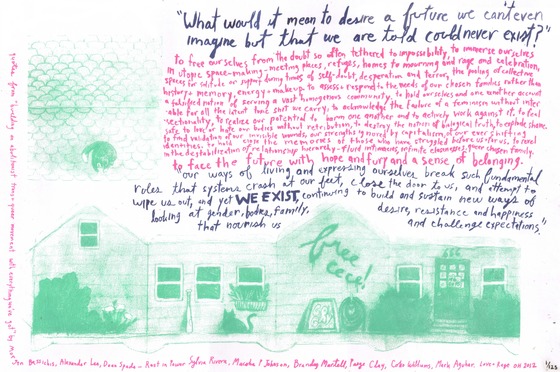 "What would it mean to desire a future we can't even
imagine but that we are told could never exist?"
to free ourselves from the doubt so often tethered to impossibility, to immerse ourselves
in utopic space-making - meeting places, refuges, homes to mourning and rage and celebration,
spaces for solitude or support during times of self-doubt, desperation and terror, the pooling of collective
history, memory, energy + makeup to assess + respond to the needs of our chosen families rather than
a falsified notion of serving a vast homogenous community, to hold ourselves and one another account
able for all the latent toxic shit we carry, to acknowledge the failure of a feminism without inter
sectionality, to realize our potential to harm one another and to actively work against it, to feel
safe to love or hate our bodies without retribution, to destroy the notion of biological truth, to explode shame,
to find validation of our invisible wounds, our strengths ignored by capitalism, of our ever shifting
identities, to hold close the memories of those who have struggled before us + for us, to revel
in the destabilization of relationship hierarchy - fluid intimacies, infinite closenesses, given chosen family,
to face the future with hope and fury and a sense of belonging.
our ways of living and expressing ourselves break such fundamental
roles that systems crash at our feet, close the door to us, and attempt to
wipe us out, and yet WE EXIST, continuing to build and sustain new ways of
looking at gender, bodies, family, desire, resistance and happiness
that nourish us and challenge expectations."
free
cece!
quotes from "building an abolitionist trans + queer movement with everything we've got" by Morgan
Bassichis, Alexander Lee, Dean Spade - Rest in Power Sylvia Rivera, Marsha P Johnson, Brandy Martell, Paige Clay, Coko Williams, Mark Aguhar. Love + Rage OH 2012